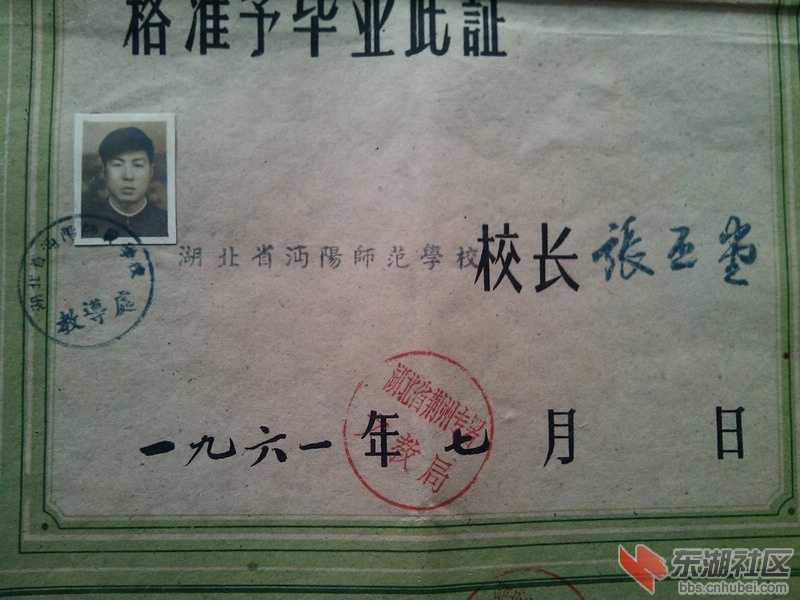 格准予毕业此証
湖北省沔陽師范學校
校长 張亞堂
湖北省沔陽師範學校
教導處
湖北省荆州专署
教局
一九六一年七月 日
东湖社区
bbs.cnhubei.com